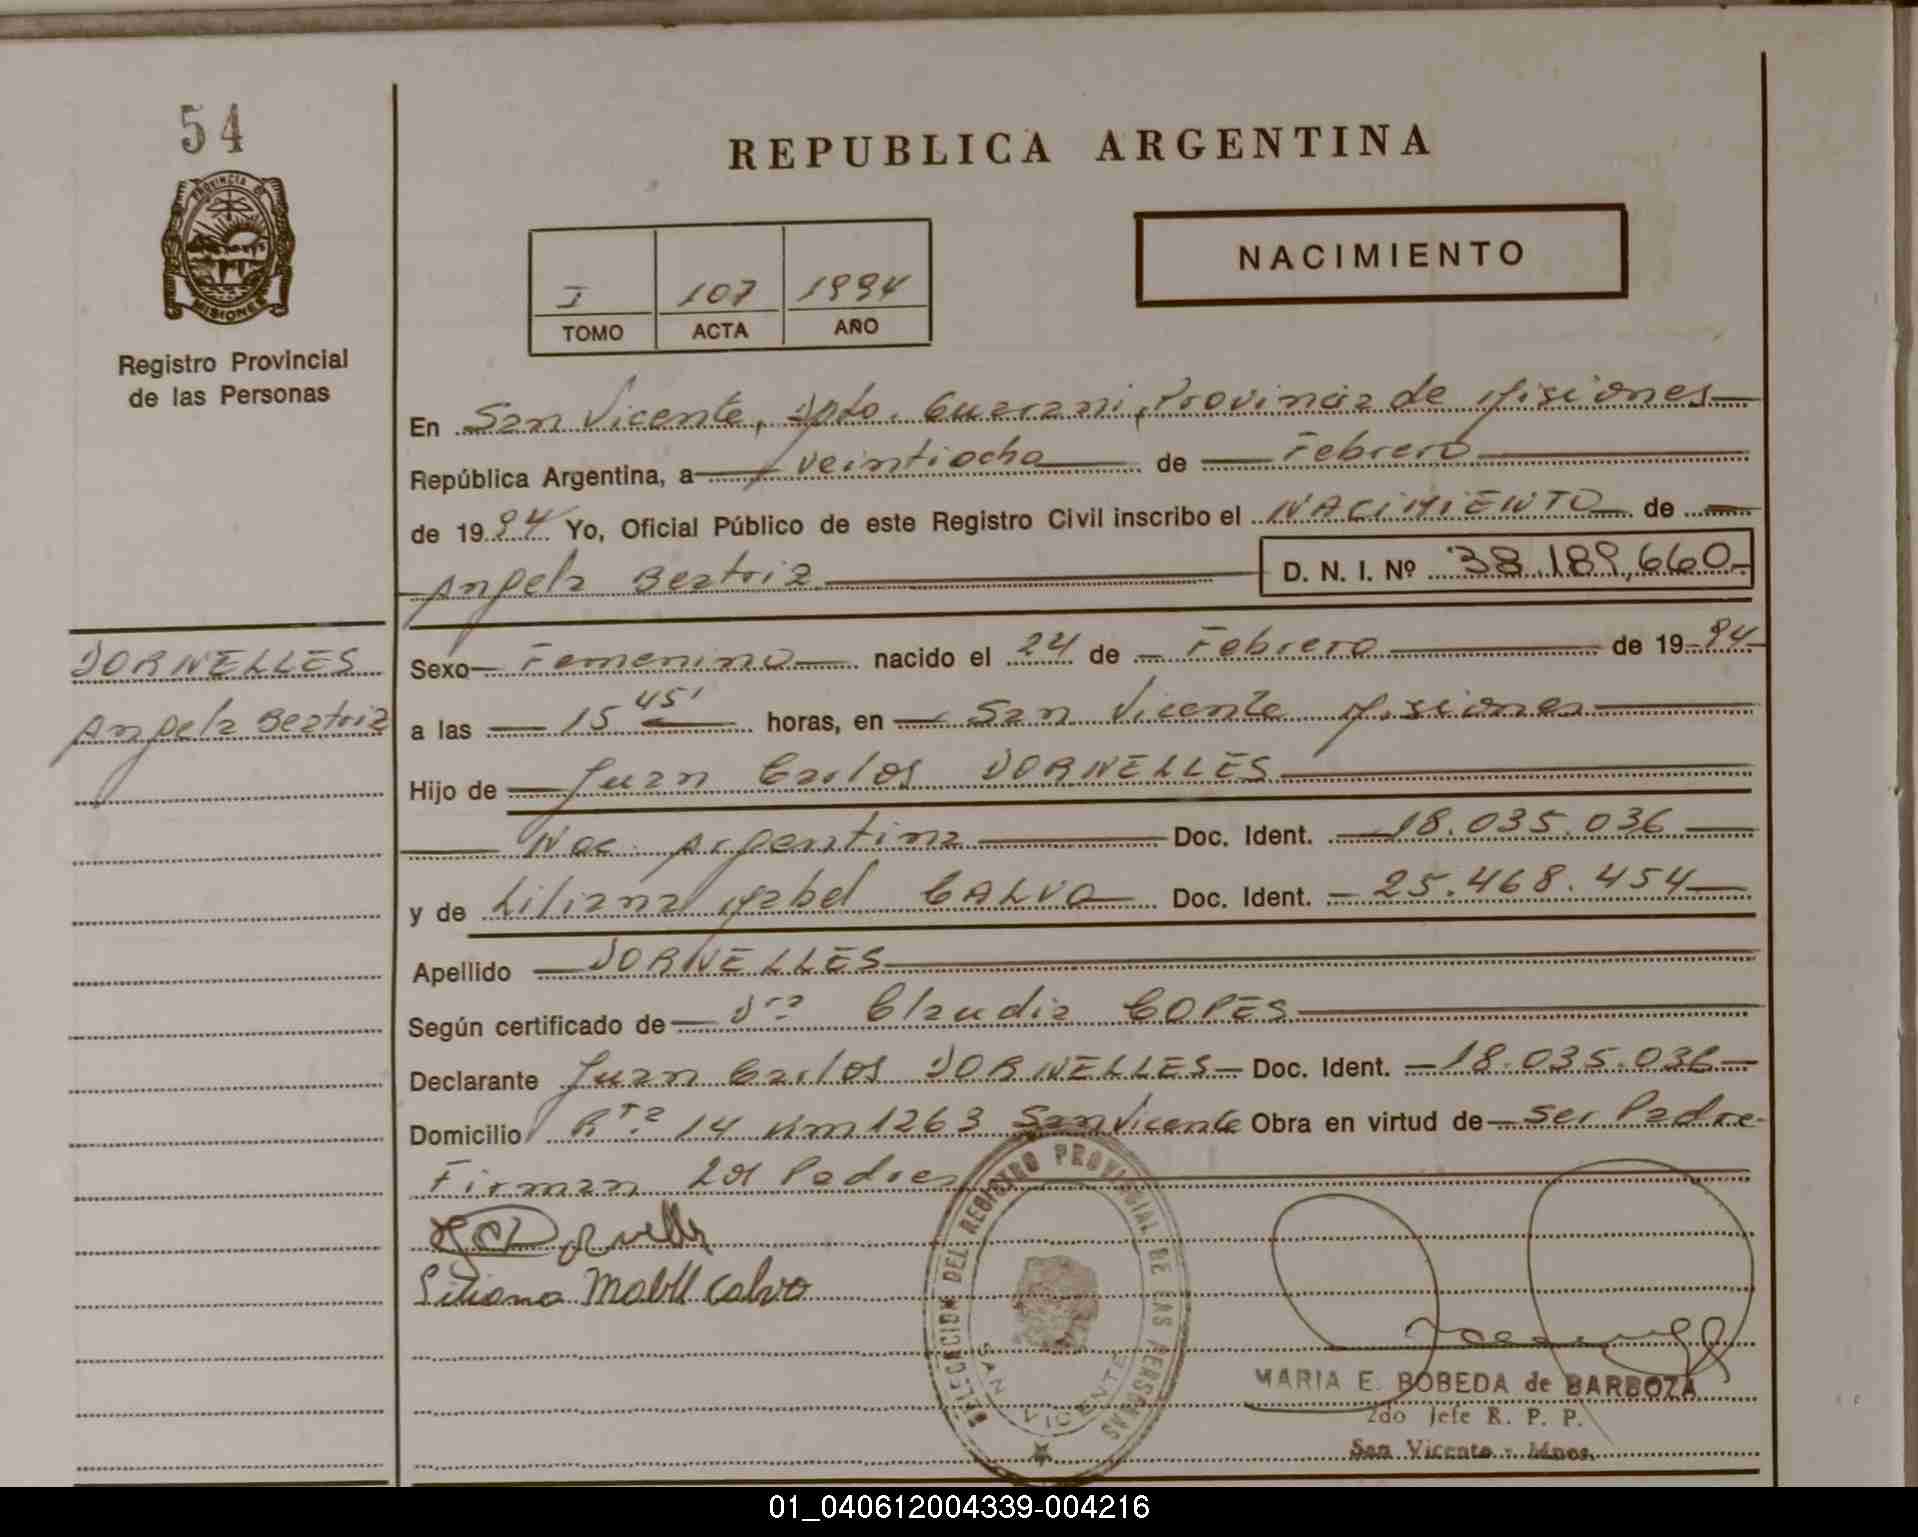 54
PROVINCIA DE
MISIONES
Registro Provincial
de las Personas
REPUBLICA ARGENTINA
NACIMIENTO
I 107 1994
TOMO ACTA AÑO
En San Vicente, Dpto. Guarani, Provincia de Misiones
República Argentina, a veintiocho de Febrero
de 1994 Yo, Oficial Público de este Registro Civil inscribo el NACIMIENTO de
Angela Beatriz D. N. I. Nº 38.189.660
DORNELLES
Angela Beatriz
Sexo Femenino nacido el 24 de Febrero de 1994
a las 15 45' horas, en San Vicente Misiones
Hijo de Juan Carlos DORNELLES
Nac. Argentina Doc. Ident. 18.035.036
y de Liliana Mabel CALVO Doc. Ident. 25.468.454
Apellido DORNELLES
Según certificado de Dra Claudia COPES
Declarante Juan Carlos DORNELLES Doc. Ident. 18.035.036
Domicilio Rta 14 Km 1263 San Vicente Obra en virtud de ser Padre
Firman los Padres
Liliana Mabel Calvo
DELEGACION DEL REGISTRO PROVINCIAL DE LAS PERSONAS
SAN VICENTE
MARIA E. BOBEDA de BARBOZA
2do Jefe R. P. P.
San Vicente - Mnes.
01_040612004339-004216